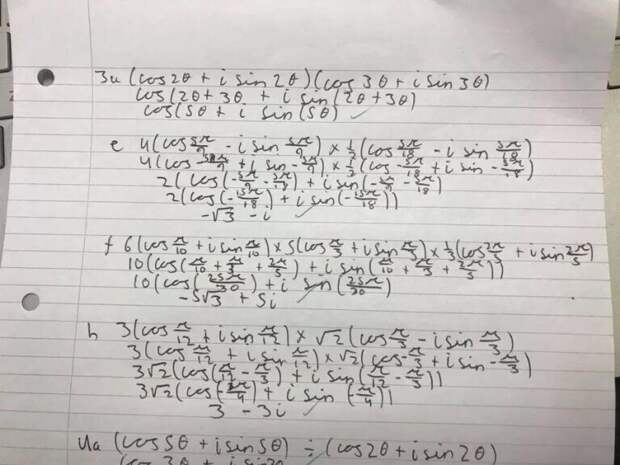 3a (cos2θ + i sin 2θ)(cos 3θ + i sin 3θ)
cos(2θ + 3θ + i sin(2θ + 3θ)
cos(5θ + i sin(5θ) ✓
e 4(cos 5π/9 - i sin 5π/9) × 1/2(cos 5π/18 - i sin 5π/18)
4(cos -5π/9 + i sin -5π/9) × 1/2(cos -5π/18 + i sin -5π/18)
2(cos(-5π/9 - 5π/18) + i sin(-5π/9 - 5π/18)
2(cos(-15π/18) + i sin(-15π/18))
-√3 - i ✓
f 6(cos π/10 + i sin π/10) × 5(cos π/3 + i sin π/3) × 1/3(cos 2π/5 + i sin 2π/5)
10(cos(π/10 + π/3 + 2π/5) + i sin(π/10 + π/3 + 2π/5))
10(cos(25π/30) + i sin(25π/30)
-5√3 + 5i ✓
h 3(cos π/12 + i sin π/12) × √2(cos π/3 - i sin π/3)
3(cos π/12 + i sin π/12) × √2(cos -π/3 + i sin -π/3)
3√2(cos(π/12 - π/3) + i sin(π/12 - π/3))
3√2(cos(-π/4) + i sin(-π/4))
3 - 3i ✓
4a (cos5θ + i sin5θ) ÷ (cos2θ + i sin2θ)
(cos 3θ + i sin 3θ